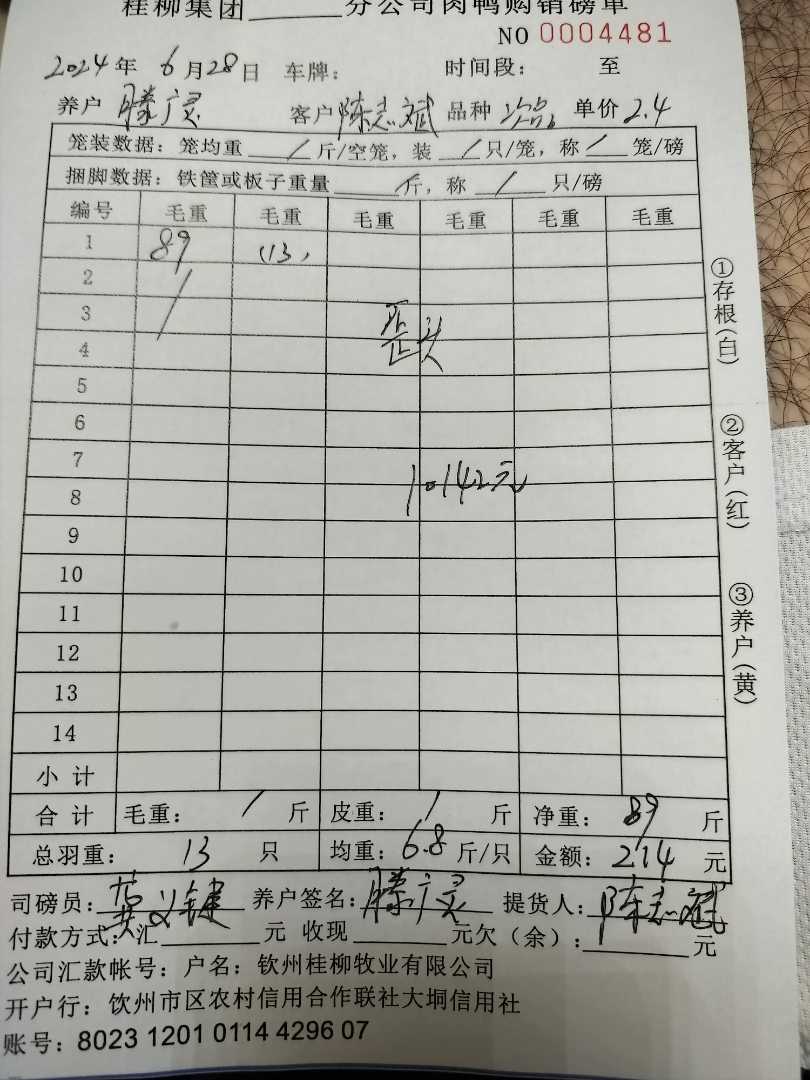 桂柳集团______分公司肉鸭购销磅单
NO 0004481
2024年 6月28日 车牌： 时间段： 至
养户 滕广灵 客户 陈志斌 品种 单价 2.4
笼装数据：笼均重 / 斤/空笼，装 / 只/笼，称 / 笼/磅
捆脚数据：铁筐或板子重量 斤，称 / 只/磅
编号 毛重 毛重 毛重 毛重 毛重 毛重
1 89 (13)
2 /
3 /
歪头
4
5
6
7
10142元
8
9
10
11
12
13
14
小计
合计 毛重： / 斤 皮重： / 斤 净重： 89 斤
总羽重： 13 只 均重：6.8 斤/只 金额：214 元
司磅员：黄义键 养户签名：滕广灵 提货人：陈志斌
付款方式：汇______元 收现______元欠（余）：______元
公司汇款帐号：户名：钦州桂柳牧业有限公司
开户行：钦州市区农村信用合作联社大垌信用社
账号：8023 1201 0114 4296 07
①存根(白)
②客户(红)
③养户(黄)